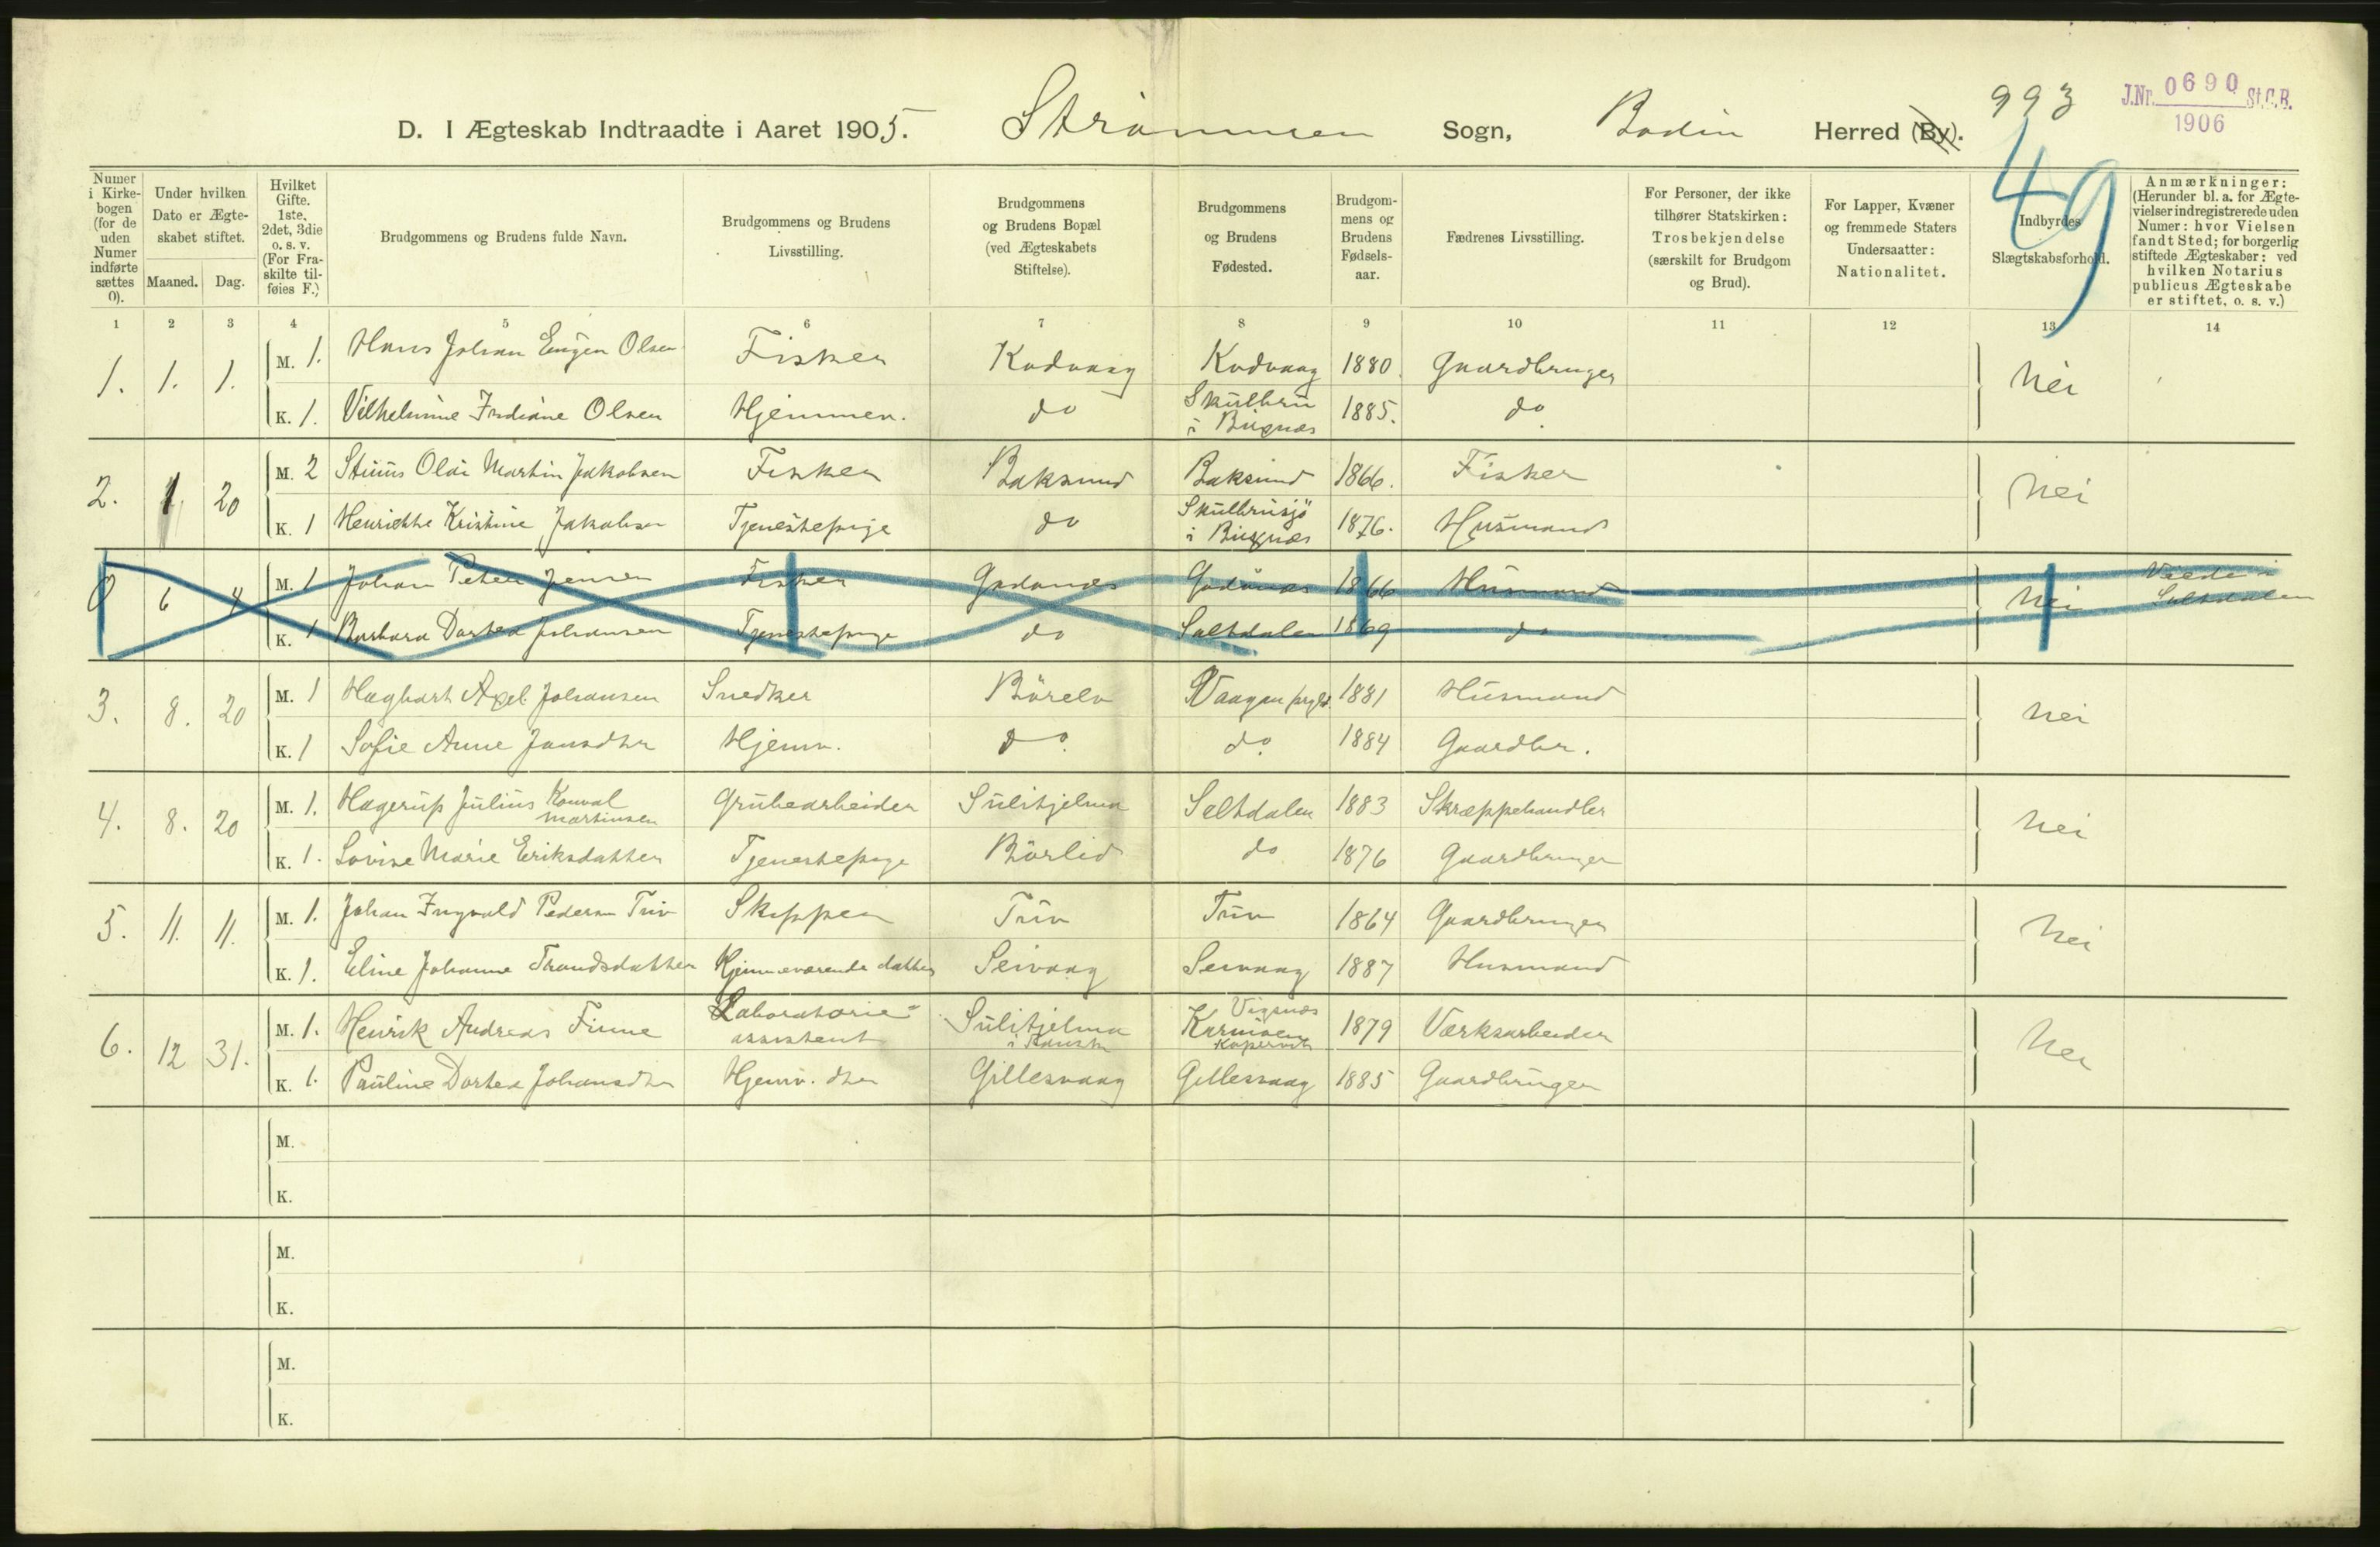 993
J.Nr. 0690 St.C.B.
1906
D. I Ægteskab Indtraadte i Aaret 1905. Strømmen Sogn, Bodin Herred (By).
49
Numer i Kirkebogen (for de uden Numer indførte sættes 0).
Under hvilken Dato er Ægteskabet stiftet.
Maaned. Dag.
Hvilket Gifte. 1ste, 2det, 3die o. s. v. (For Fraskilte tilføies F.)
Brudgommens og Brudens fulde Navn.
Brudgommens og Brudens Livsstilling.
Brudgommens og Brudens Bopæl (ved Ægteskabets Stiftelse).
Brudgommens og Brudens Fødested.
Brudgommens og Brudens Fødselsaar.
Fædrenes Livsstilling.
For Personer, der ikke tilhører Statskirken: Trosbekjendelse (særskilt for Brudgom og Brud).
For Lapper, Kvæner og fremmede Staters Undersaatter: Nationalitet.
Indbyrdes Slægtskabsforhold.
Anmærkninger: (Herunder bl. a. for Ægtevielser indregistrerede uden Numer: hvor Vielsen fandt Sted; for borgerlig stiftede Ægteskaber: ved hvilken Notarius publicus Ægteskabe er stiftet, o. s. v.)
1 2 3 4 5 6 7 8 9 10 11 12 13 14
1. 1. 1. M. 1. Hans Johan Eugen Olsen Fisker Kodvaag Kodvaag 1880 Gaardbruger nei
K. 1. Vilhelmine Indiane Olsen Hjemmev. do Skulbru i Bugnæs 1885. do
2. 1 20 M. 2 Olai Martin Jakobsen Fisker Baksund Baksund 1866. Fisker nei
K. 1 Henriette Kristine Jakobsen Tjenestepige do i 1876. Husmand
0 6 4 M. 1 Johan Peter Jensen Fisker Godønæs Godønæs 1866 Husmand nei Viede i Saltdalen
K. 1 Barbara Dortea Johansen Tjenestepige do Saltdalen 1869 do
3. 8. 20 M. 1 Hagbart Axel Johansen Snedker Börelv Vaagan 1881 Husmand nei
K. 1 Sofie Anne Jansdtr Hjemv. do. do. 1884 Gaardbr.
4. 8. 20 M. 1. Hagerup Julius Konval Martinsen Grubearbeider Sulitjelma Saltdalen 1883 Skræppehandler nei
K. 1. Lovise Marie Eriksdatter Tjenestepige Börlid do 1876 Gaardbruger
5. 11. 11. M. 1. Johan Ingvald Pedersen Tuv Skipper Tuv Tuv 1864 Gaardbruger nei
K. 1. Eline Johanne Trondsdatter Hjemmeværende datter Seivaag Seivaag 1887 Husmand
6. 12 31. M. 1. Henrik Andreas Finne Laboratorieassistent Sulitjelma Vignæs Karmøen Kopervik 1879 Værksarbeider nei
K. 1. Pauline Dortea Johansdtr Hjemv. dtr Gillesvaag Gillesvaag 1885 Gaardbruger
M.
K.
M.
K.
M.
K.